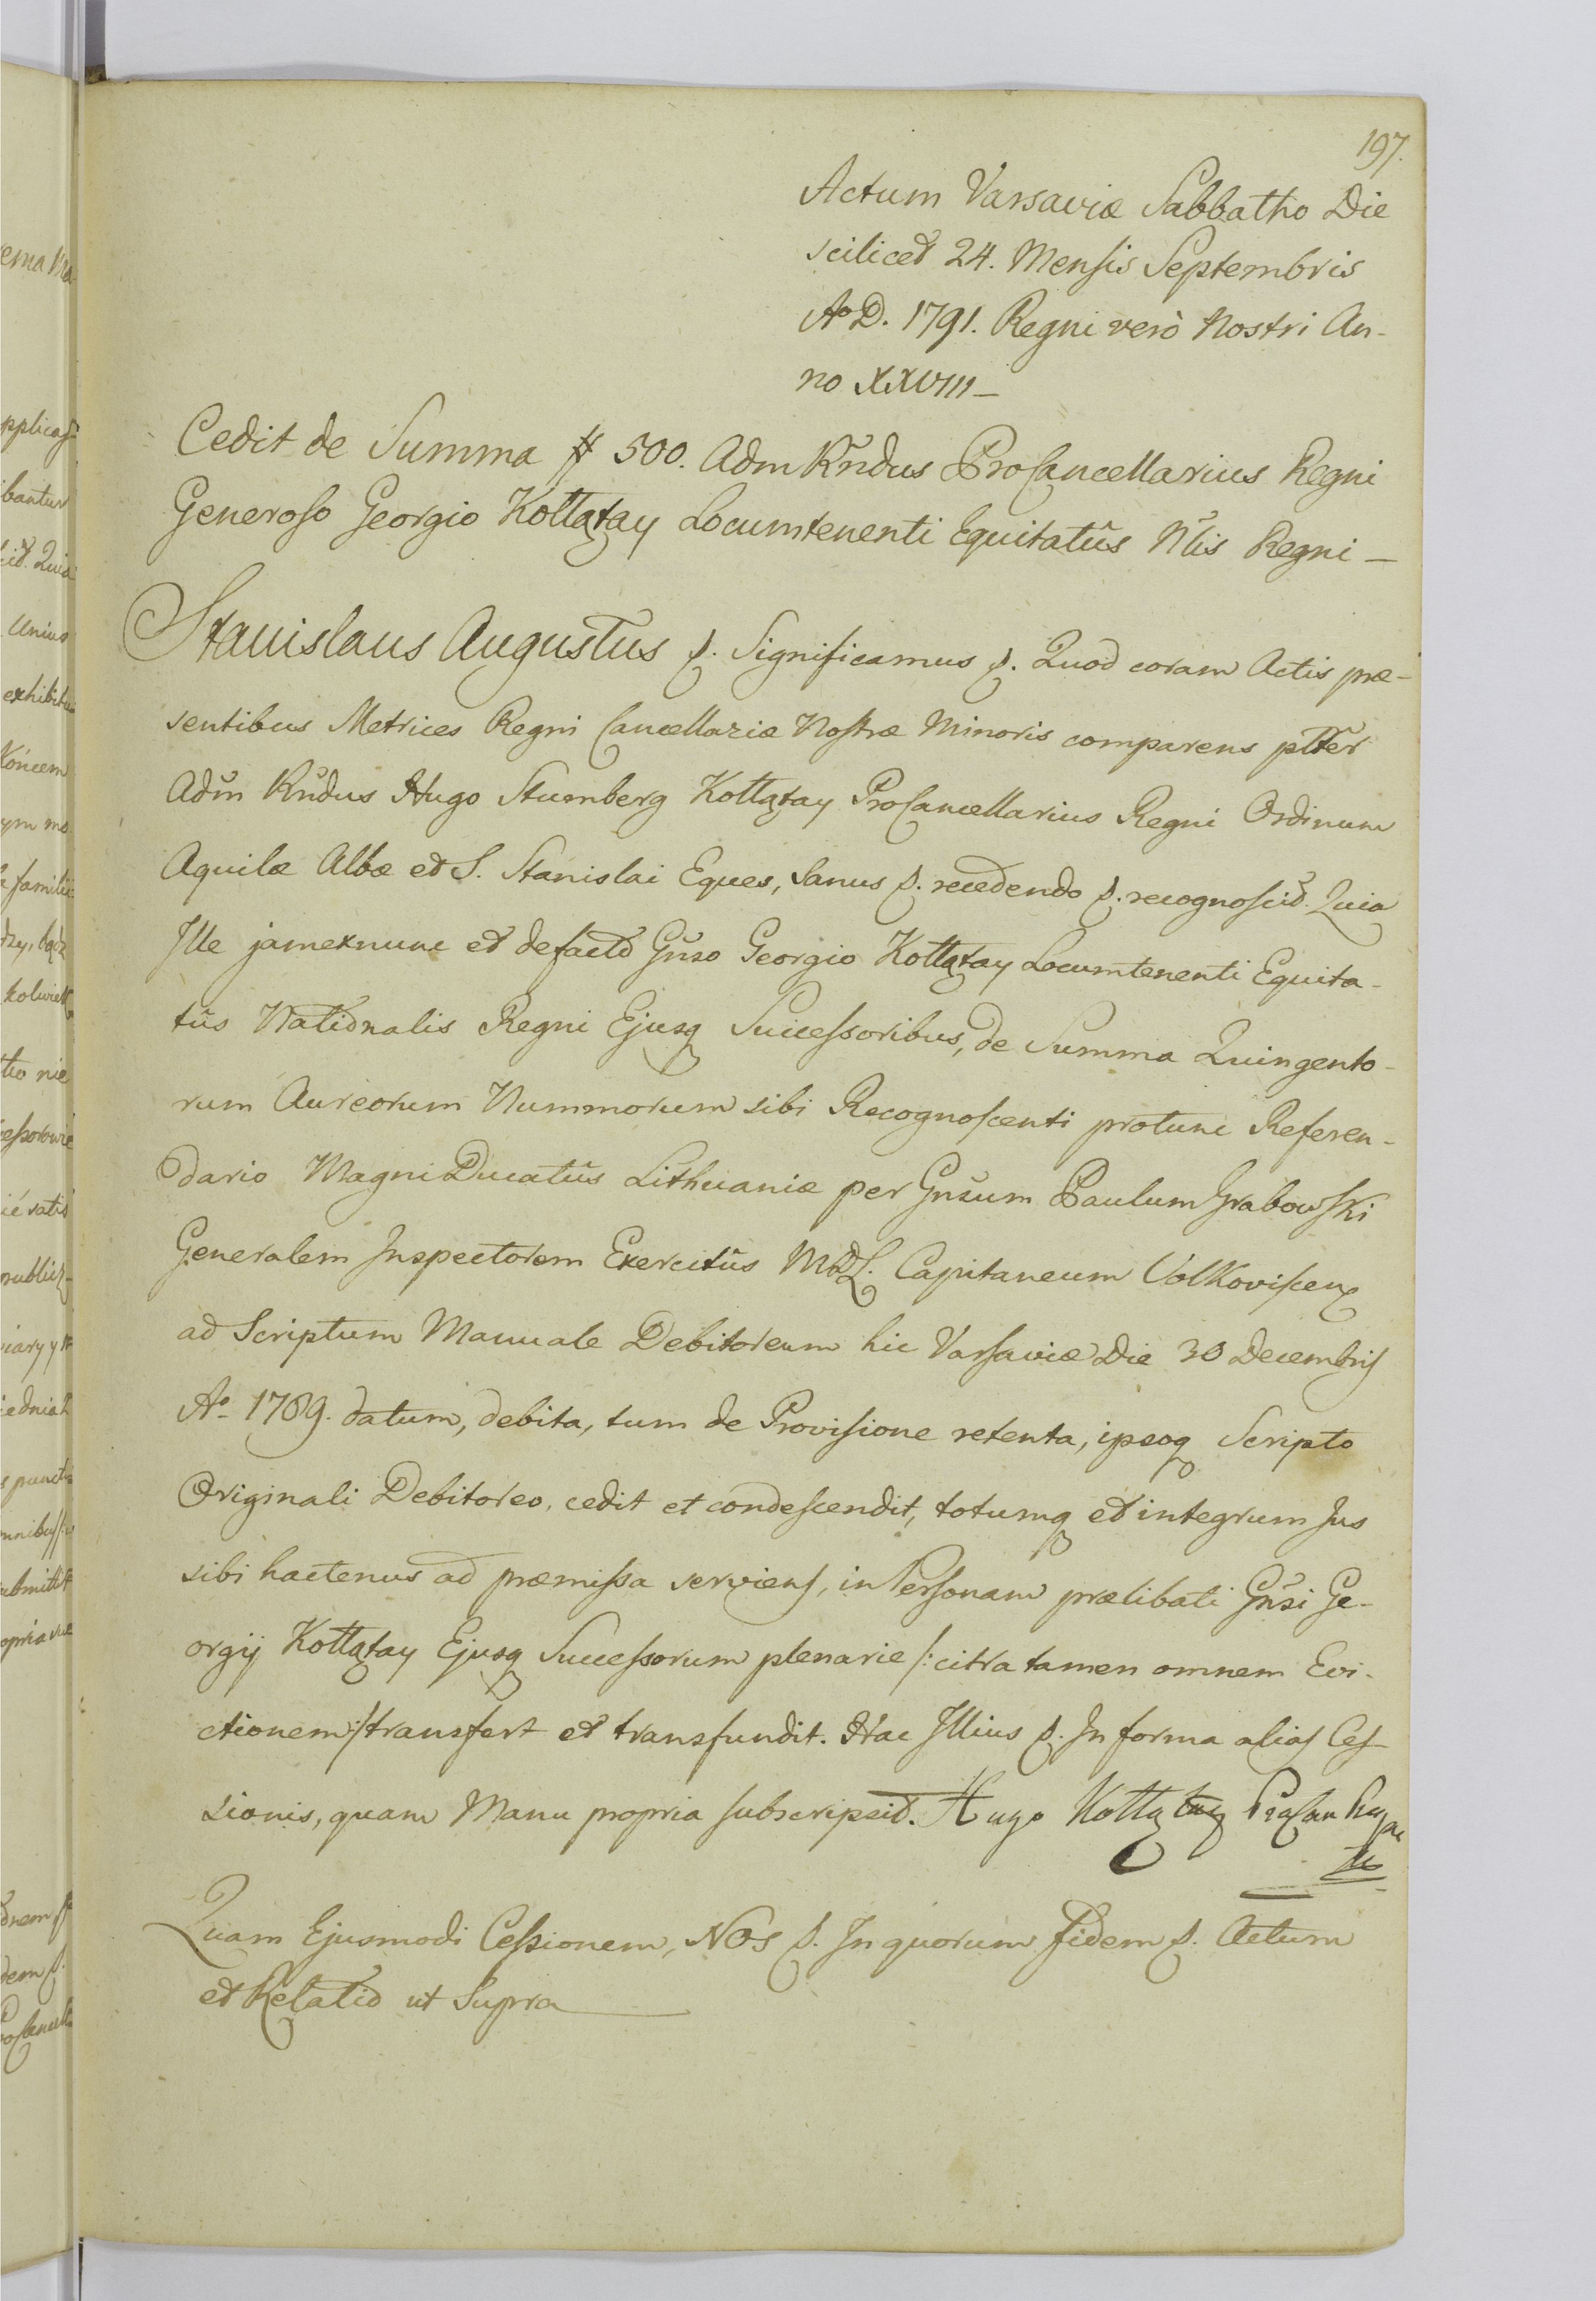 197.
Actum Varsaviæ Sabbatho Die
scilicet 24. Mensis Septembris
Aº D. 1791. Regni verò Nostri An-
no XXVIII_
Cedit de Summa # 500. Adm Rndus ProCancellarius Regni
Generoso Georgio Kołłątay Locumtenenti Equitatûs Nlis Regni _
Stanislaus Augustus p. Significamus p. Quod coram Actis præ-
sentibus Metrices Regni Cancellariæ Nostræ Minoris comparens plter
Adm Rndus Hugo Stumberg Kołłątay ProCancellarius Regni Ordinum
Aquilæ Albæ et S. Stanislai Eques, Sanus p. recedendo p. recognoscit. Quia
Ille jamexnunc et defacto Gnso Georgio Kołłątay Locumtenenti Equita-
tûs Nationalis Regni Ejusq Successoribus, de Summa Quingento-
rum Aureorum Nummorum sibi Recognoscenti protunc Referen-
dario Magni Ducatûs Lithuaniæ per Gnsum Paulum Grabowski
Generalem Inspectorem Exercitûs MDL. Capitaneum Volkoviscen
ad Scriptum Manuale Debitoreum hic Varsaviæ Die 30 Decembris
Aº 1789. datum, debita, tum de Provisione retenta, ipsoq Scripto
Originali Debitoreo, cedit et condescendit, totumq et integrum Jus
sibi hactenus ad præmissa serviens, in Personam prælibati Gnsi Ge-
orgij Kołłątay Ejusq Successorum plenarie /: citra tamen omnem Evi-
ctionem :/ transfert et transfundit. Hac Illius p. In forma alias Ces-
sionis, quam Manu propria subscripsit. Hugo Kołłątay
Quam Ejusmodi Cessionem, NOS p. In quorum fidem p. Actum
et Relatio ut Supra